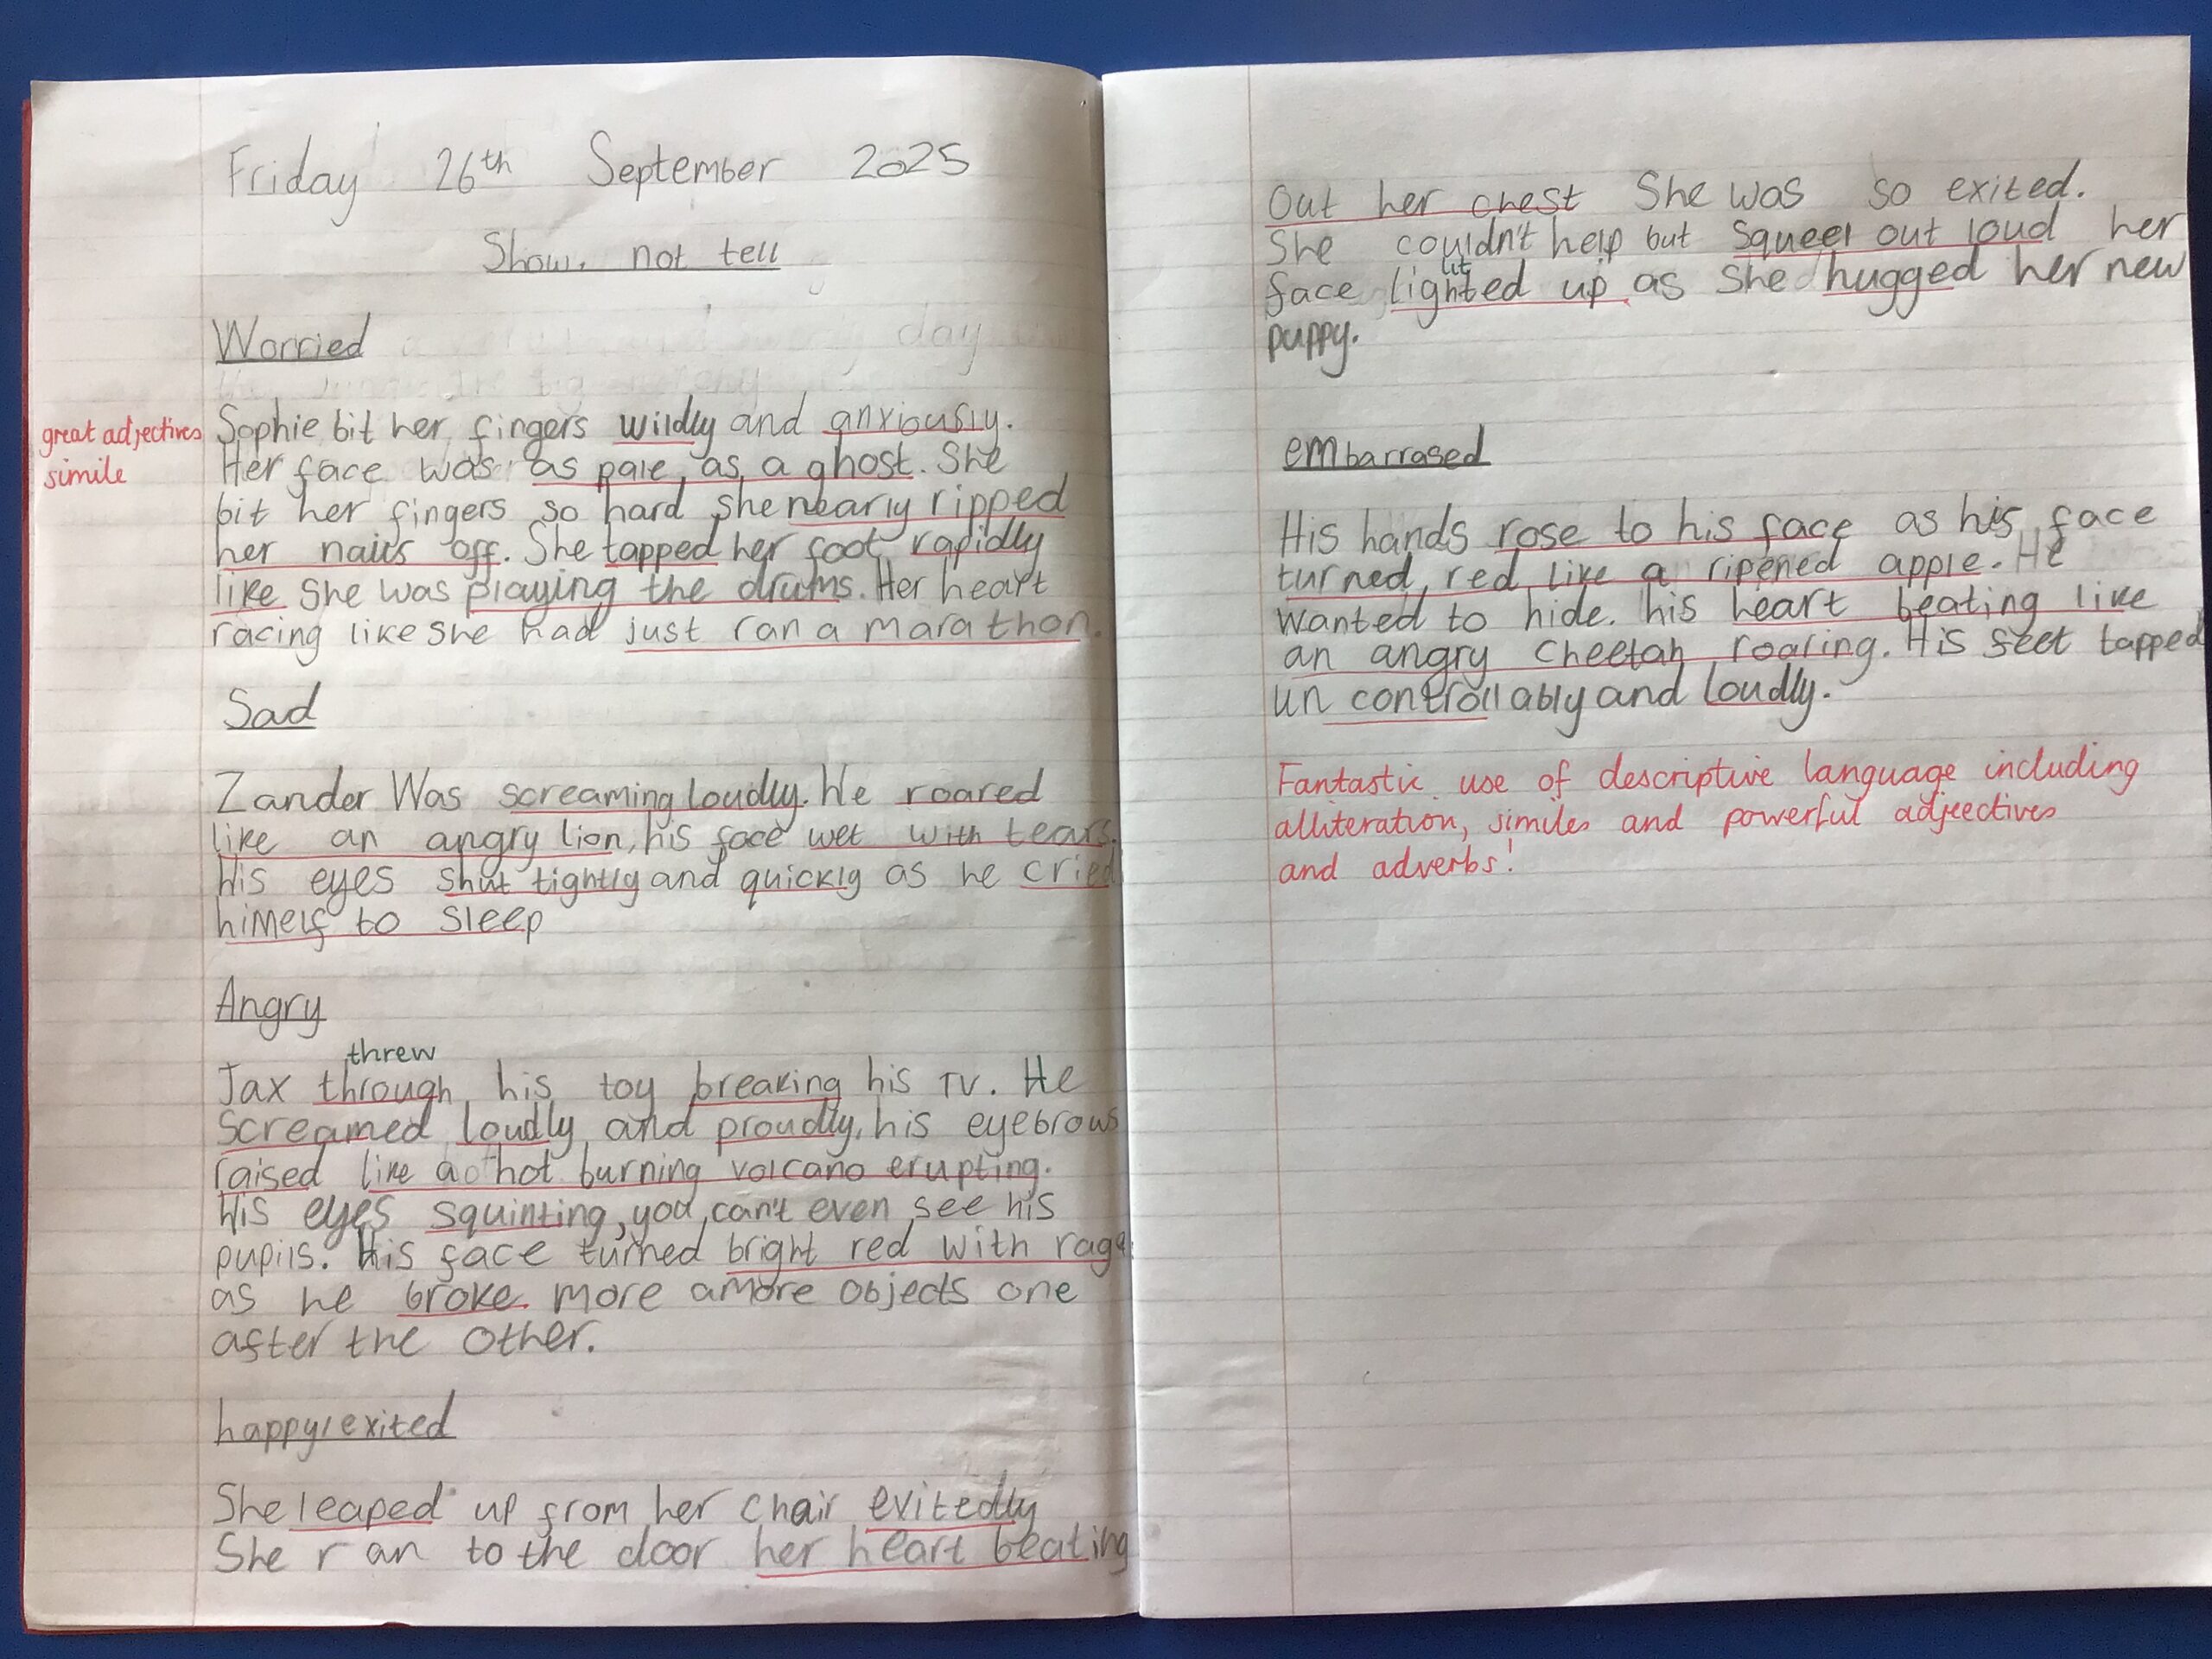 Friday 26th September 2025
Show, not tell
Worried
great adjectives
simile
Sophie bit her fingers wildly and anxiously.
Her face was as pale as a ghost. She
bit her fingers so hard she nearly ripped
her nails off. She tapped her foot rapidly
like she was playing the drums. Her heart
racing like she had just ran a marathon.
Sad
Zander Was screaming loudly. He roared
like an angry lion, his face wet with tears.
His eyes shut tightly and quickly as he cried
himelf to sleep
Angry
threw
Jax through his toy breaking his TV. He
screamed loudly and proudly, his eyebrows
raised like a hot burning volcano erupting.
His eyes squinting, you can't even see his
pupils. His face turned bright red with rage
as he broke more amore objects one
after the other.
happy/exited
She leaped up from her chair exitedly
She ran to the door her heart beating
Out her chest She was so exited.
She couldn't help but squeel out loud her
lit
face lighted up as she hugged her new
puppy.
embarrased
His hands rose to his face as his face
turned red like a ripened apple. He
wanted to hide. his heart beating like
an angry cheetah roaring. His feet tapped
un controllably and loudly.
Fantastic use of descriptive language including
alliteration, similes and powerful adjectives
and adverbs!